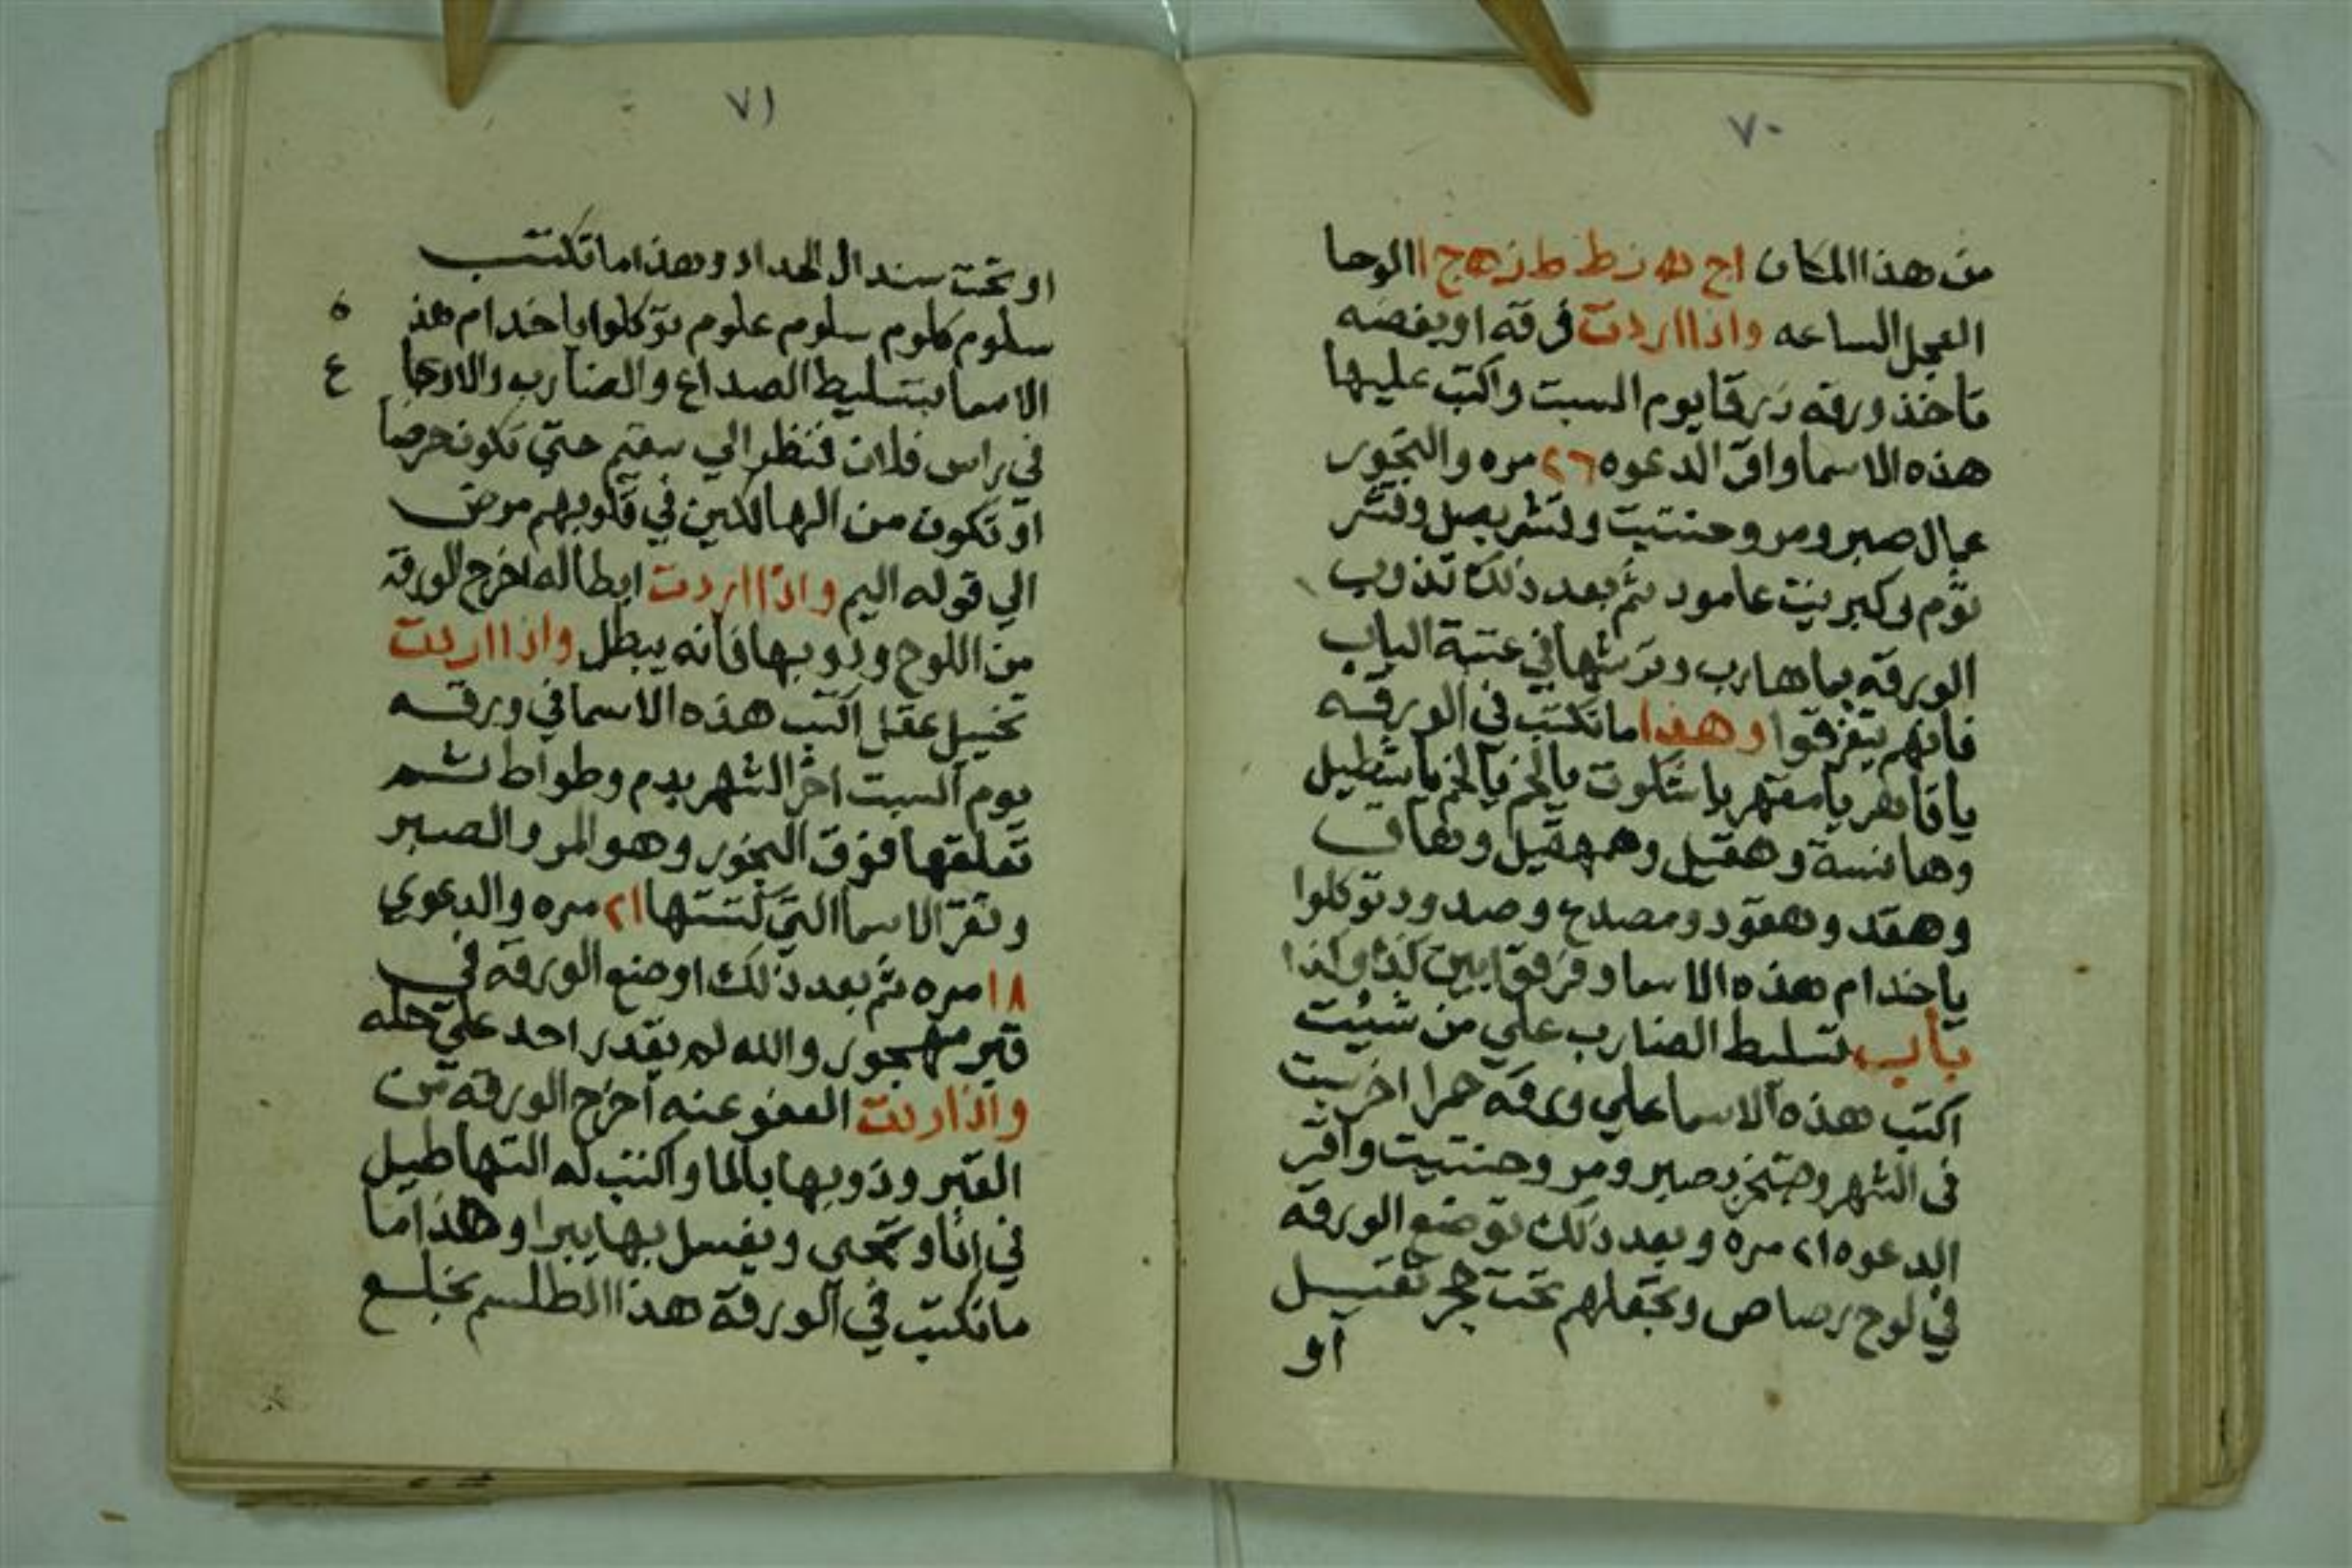 ٧٠
من هذا المكان اج هه زط ط زهج ا الوحا
العجل الساعه واذا اردت فرقه او بغضه
تاخذ ورقه زرقا يوم السبت واكتب عليها
هذه الاسما واقرا الدعوه ٢٦ مره والبخور
عمال صبر ومر وحنتيت وقشر بصل وقشر
توم وكبريت عامود ثم بعد ذلك تذوب
الورقه بما هارب وترشها في عتبة الباب
فانهم يتفرقوا وهذا ما تكتب فى الورقه
يا قاهر يا
وهقد وهقود ومصدح وصدود توكلوا
يا خدام هذه الاسما وفرقوا بين كذا وكذا
باب تسليط الضارب علي من شيئت
اكتب هذه الاسما علي ورقه حمرا اخر سبت
فى الشهر وتبخر بصبر ومر وحنتيت واقر
الدعوه ٢١ مره وبعد ذلك توضع الورقه
في لوح رصاص وتجعلهم تحت حجر ثقيل
او
٧١
او تحت سندال الحداد وهذا ما تكتب
سلوم كلوم سلوم علوم توكلوا يا خدام هذ ه
الاسما بتسليط الصداع والضارب والاوجا ع
في راس فلان فنظر الي سقيم حتي تكون حرضا
او تكون من الهالكين في قلوبهم مرض
الي قوله اليم واذا اردت ابطاله اخرج الورقه
من اللوح ودوبها فانه يبطل واذا اردت
تخبيل عقل اكتب هذه الاسما في ورقه
يوم السبت اخر الشهر بدم وطواط ثم
تعلقها فوق البخور وهو المر والصبر
وتقرا الاسما التي كتبتها ٢١ مره والدعوي
١٨ مره ثم بعد ذلك اوضع الورقه في
قبر مهجور والله لم يقدر احد علي حله
واذا اردت العفو عنه اخرج الورقه من
القبر وذوبها بالما واكتب له التهاطيل
في انا وتمحي ويغسل بها يبرا وهذا ما
ما تكتب في الورقة هذا الطلسم بخلع